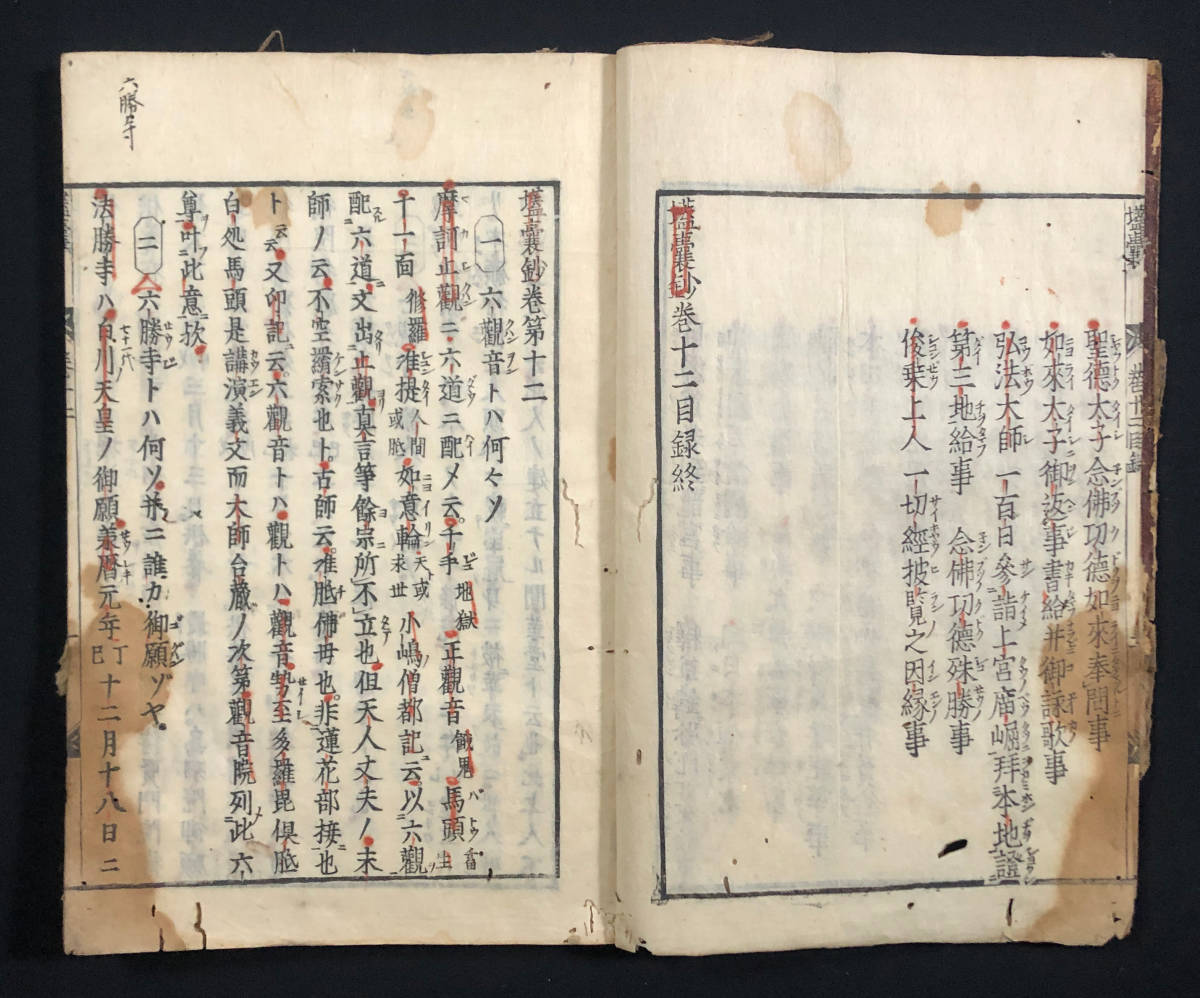 聖德太子念佛功德如來奉問事
如來太子御返事書給并御詠歌事
弘法大師一百日參詣上宮廟崛拜本地證
第三地給事 念佛功德殊勝事
俊乗上人一切經披覽之因縁事
壒囊鈔卷十二目録終
六勝寺
壒囊鈔卷第十二
一 六觀音トハ何々ソ
摩訶止觀ニ六道ニ配メ云千手地獄正觀音餓鬼馬頭畜生
十一面修羅准提人間或胝如意輪天或求世小嶋僧都記云以六觀
配六道文出止觀真言等餘宗所不立也但天人丈夫ノ末
師ノ云不空羂索也ト古師云准胝佛毋也非蓮花部接也
ト云云又印記云六觀音トハ觀トハ觀音勢至多羅毘倶胝
白処馬頭是講演義文而大師台藏ノ次第觀音院列此六
尊叶此意欤
二 六勝寺トハ何ソ并ニ誰カ御願ゾヤ
法勝寺ハ白川天皇ノ御願兼暦元年丁巳十二月十八日二